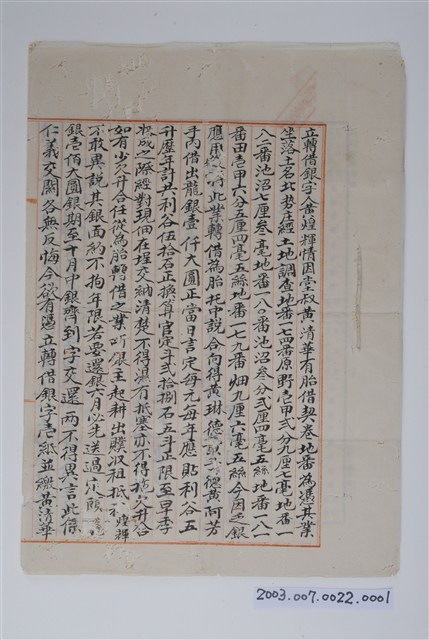 立轉借銀字人黃煌輝情因堂叔黃清華有胎借契卷地番為憑其業
坐落土名北勢庄經土地調查地番一七四番原野壹甲弍分九厘七毫地番一
八二番池沼七厘叁毫地番一八〇番池沼叁分弍厘四毫五絲地番一八一
番田壹甲六分五厘四毫五絲地番一七九番畑九厘六毫五絲今因乏銀
應用 此業轉借為胎托中說合向得黃琳德 德黃阿芳
手內借出龍銀壹仟大圓正當日言定每元每年應貼利谷五
升歷年計共利谷伍拾石正換算官定斗弍拾捌石五斗正限至早季
收成之際經對現佃在埕交納清楚不得濕有抵塞亦不得拖欠升合
如有少欠升合任從為胎轉借之業 銀主起耕出贌收租抵利煌輝
不敢異說其銀面約不拘年限若要還銀六月以先送過定頭
銀壹佰大圓銀期至十月中銀齊到字交還兩不得異言此係
仁義交關各無反悔今欲有憑立轉借銀字壹紙並繳黃清華
2003.007.0022.0001